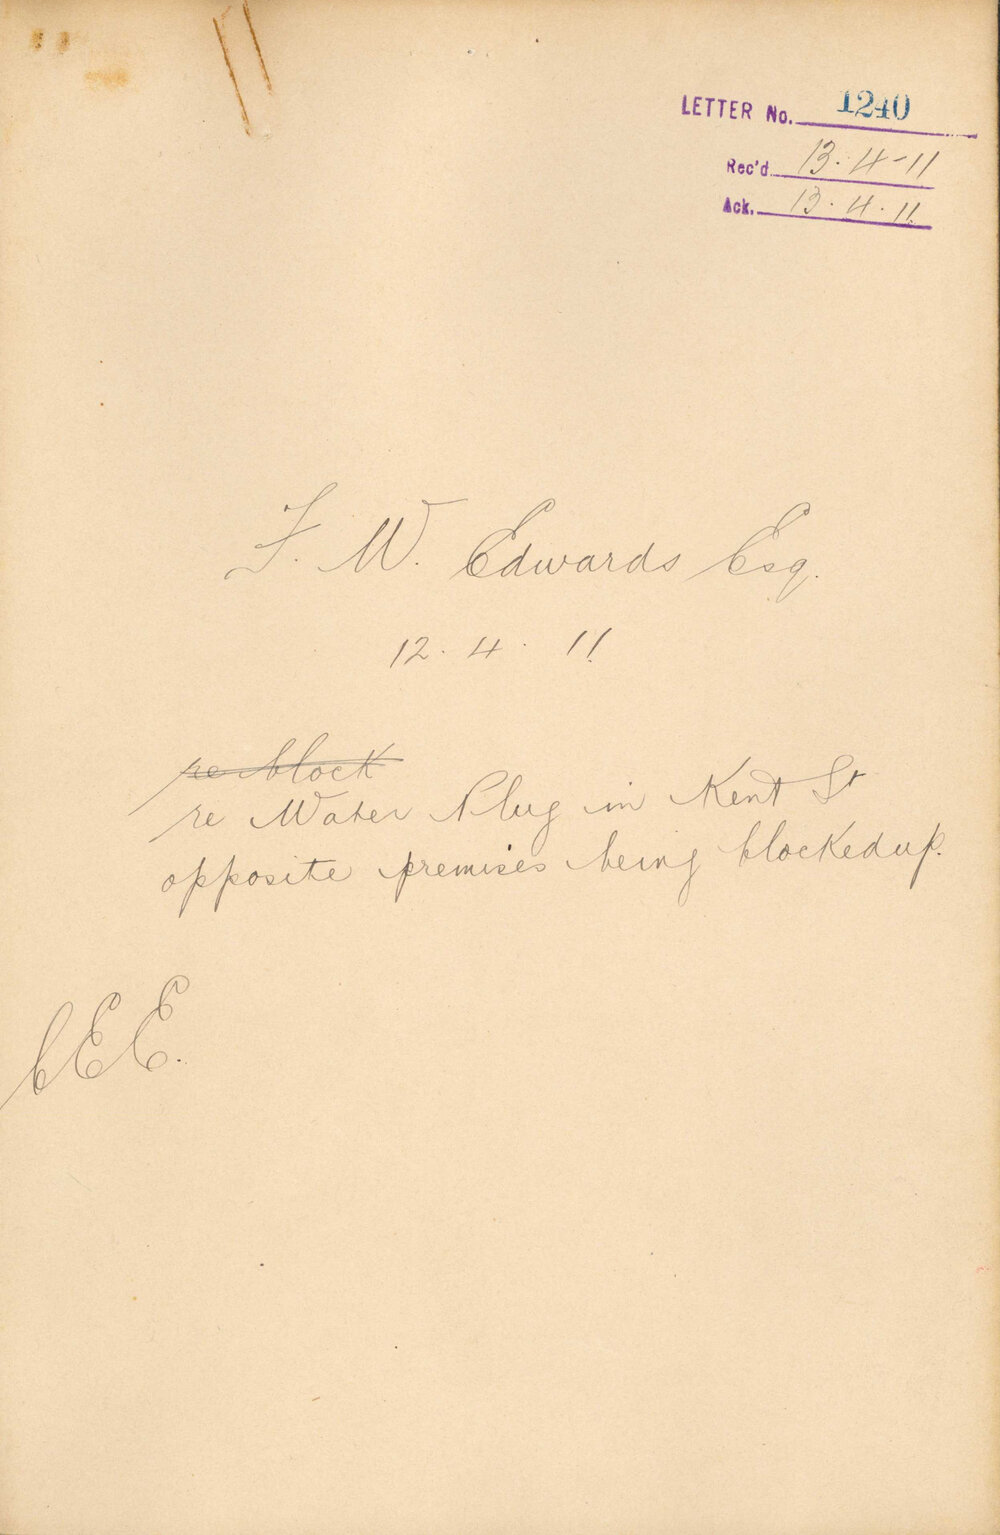 LETTER No. 1240
Rec'd 13.4-11
Ack. 13.4.11.
F. W. Edwards Esq.
12.4.11.
re block
re Water Plug in Kent St
opposite premises being blocked up.
CEE.